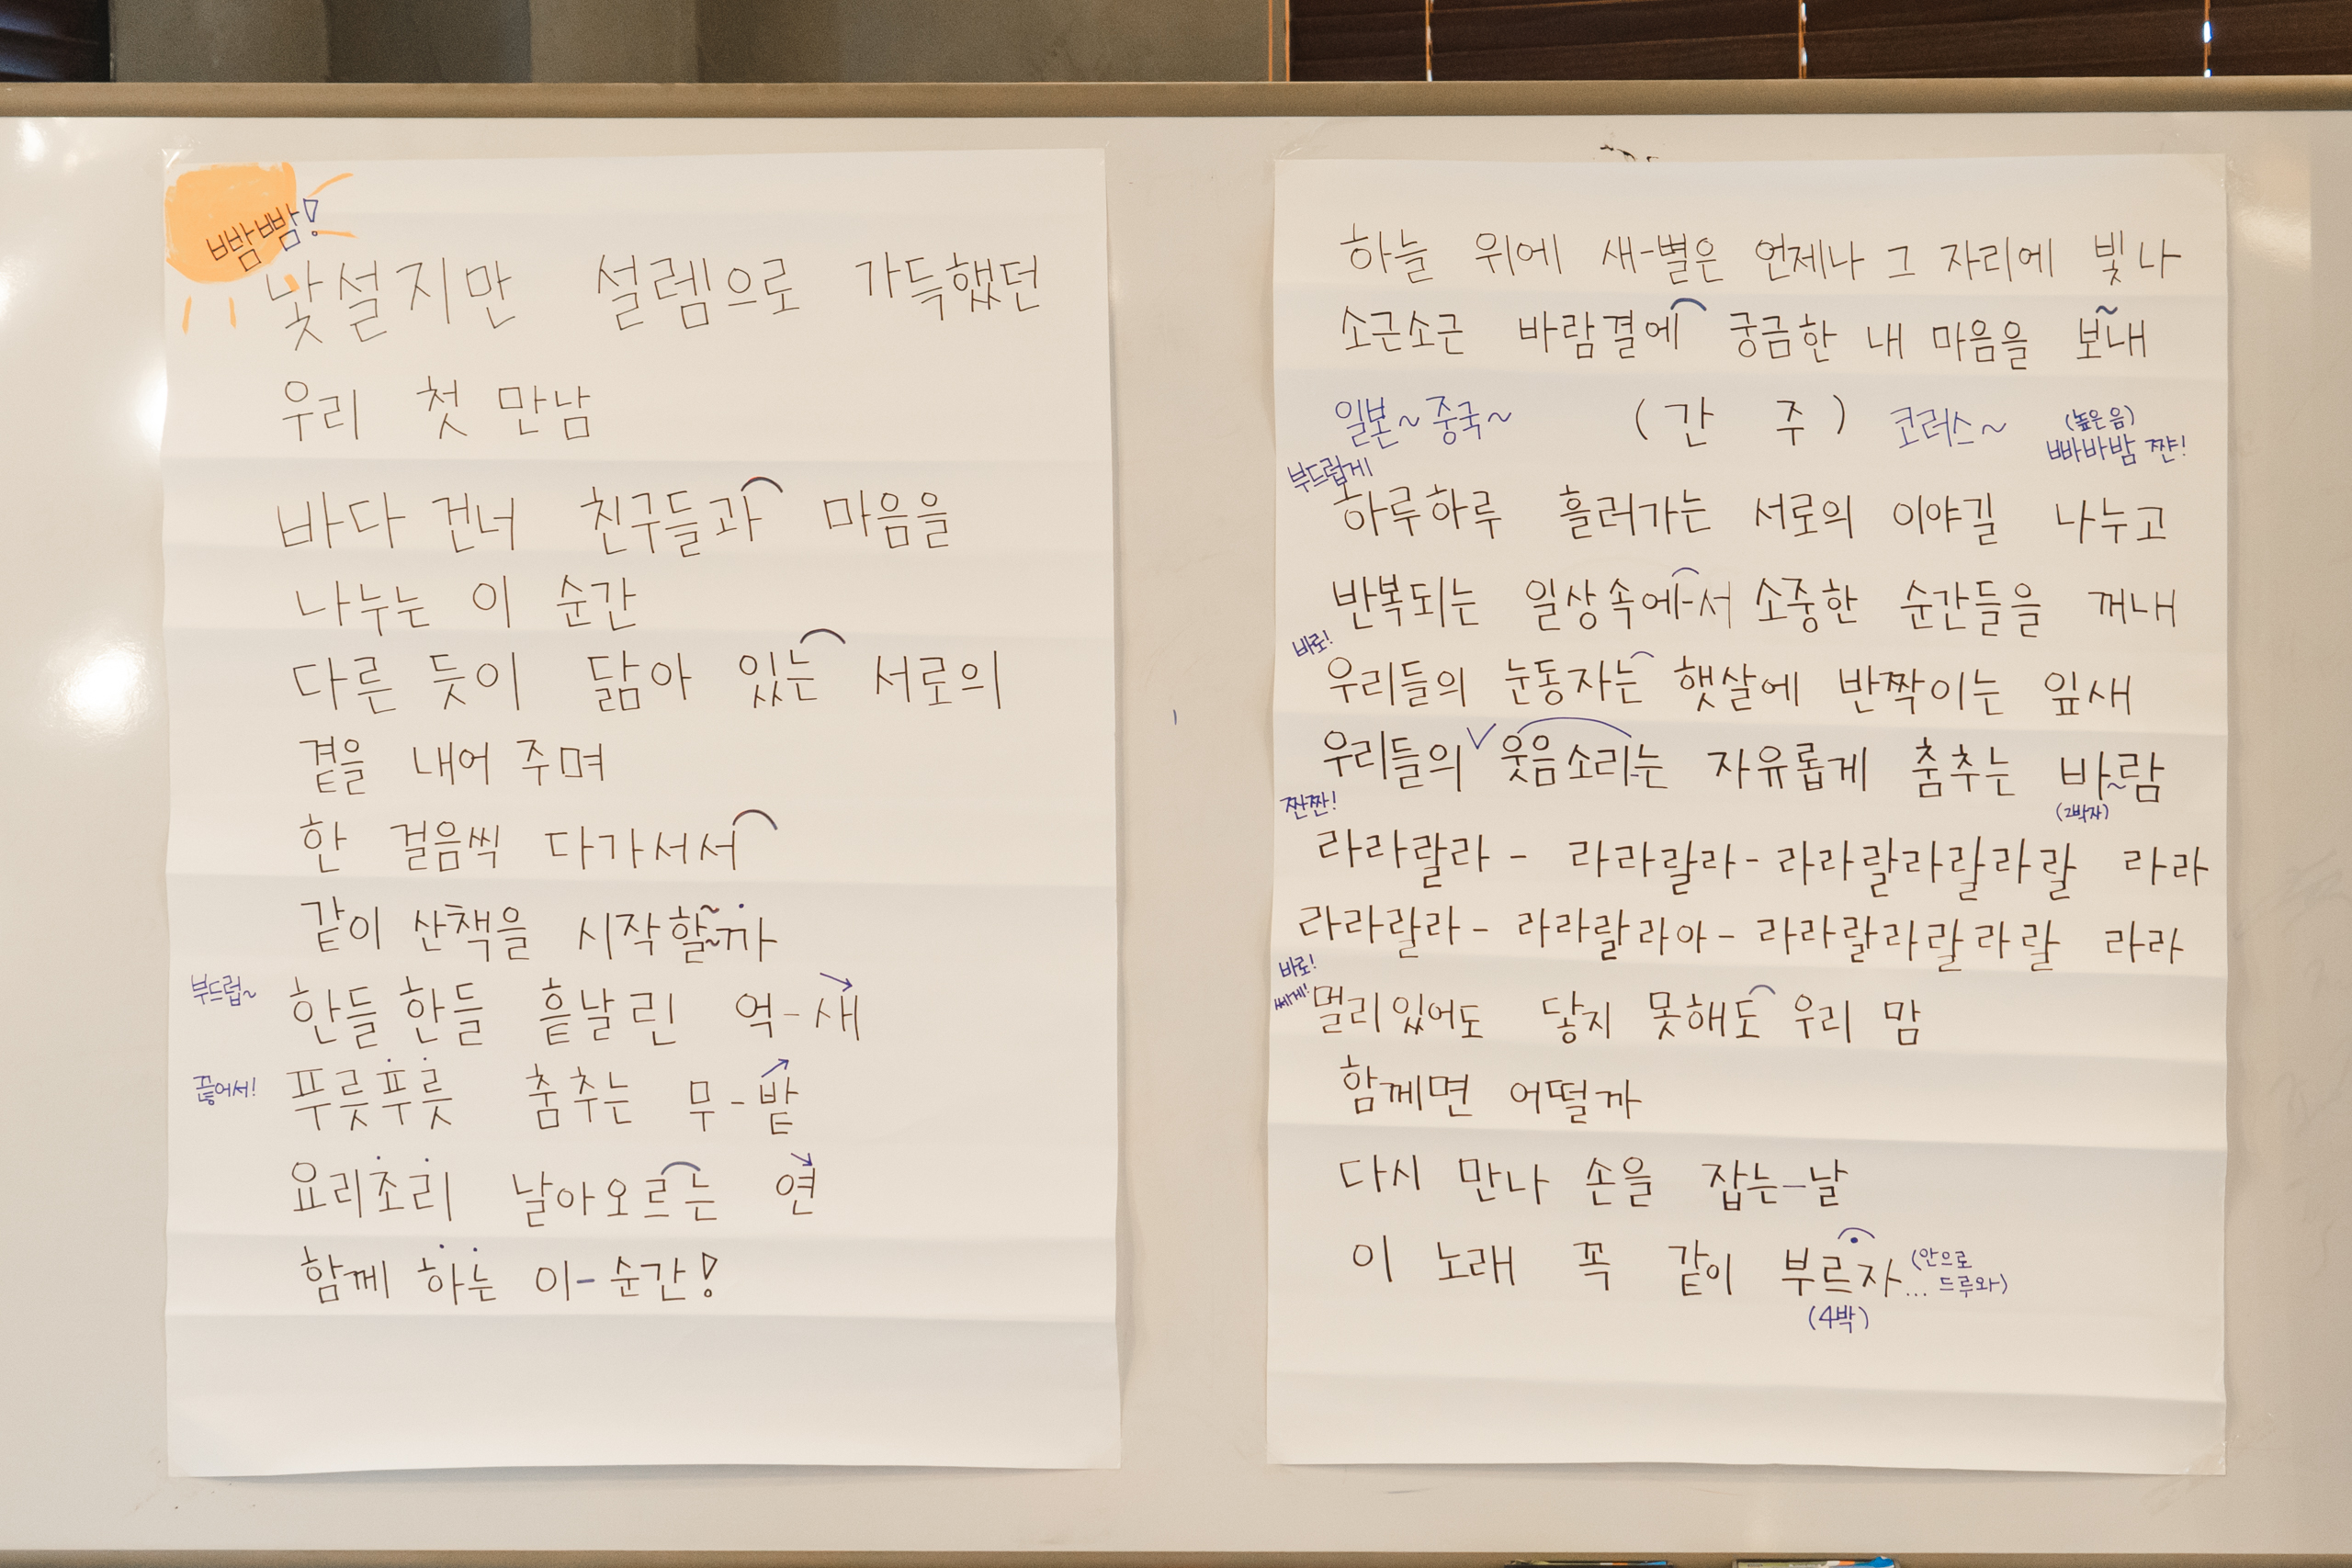 빰빰!
낯설지만 설렘으로 가득했던
우리 첫 만남
바다 건너 친구들과 마음을
나누는 이 순간
다른 듯이 닮아 있는 서로의
곁을 내어 주며
한 걸음씩 다가서서
같이 산책을 시작할~까
부드럽~
한들 한들 흩날린 억-새
끊어서!
푸릇푸릇 춤추는 무-밭
요리조리 날아오르는 연
함께 하는 이-순간!
하늘 위에 새-별은 언제나 그 자리에 빛나
소근소근 바람결에 궁금한 내 마음을 보~내
일본~중국~ (간 주) 코러스~ (높은음) 빠바밤 짠!
부드럽게
하루하루 흘러가는 서로의 이야길 나누고
반복되는 일상속에-서 소중한 순간들을 꺼내
바로!
우리들의 눈동자는 햇살에 반짝이는 잎새
우리들의 웃음소리는 자유롭게 춤추는 바~람
(2박자)
짠짠!
라라랄라- 라라랄라- 라라랄라랄라랄 라라
라라랄라- 라라랄라아- 라라랄라랄라랄 라라
바로!
쎄게!
멀리있어도 닿지 못해도 우리 맘
함께면 어떨까
다시 만나 손을 잡는-날
이 노래 꼭 같이 부르자... (안으로 드루와)
(4박)